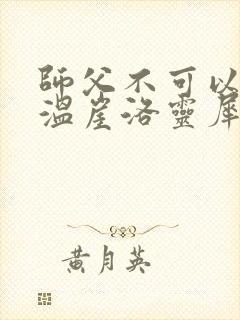 師父不可以
溫崖洛靈犀
黃月英